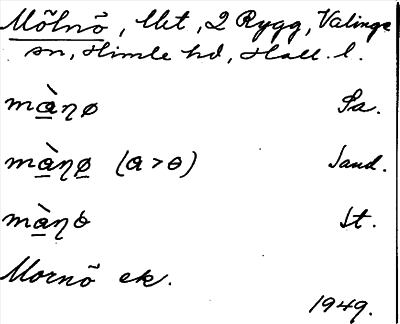 Mõlnõ, Met, 2 Rygg, Valinge
sn, Himle hd, Hall. l.
màŋø Sa.
màŋø (a > ɵ) Sand.
màŋɵ St.
Mornõ ek.
1949.